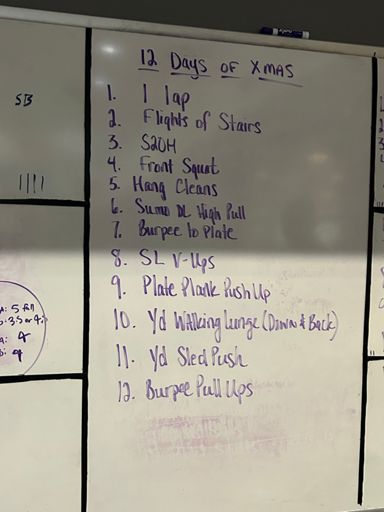 12 Days of XMAS
1. 1 lap
2. Flights of Stairs
3. S2OH
4. Front Squat
5. Hang Cleans
6. Sumo DL High Pull
7. Burpee to Plate
8. SL V-Ups
9. Plate Plank Push Up
10. Yd Walking Lunge (Down & Back)
11. Yd Sled Push
12. Burpee Pull Ups
SB